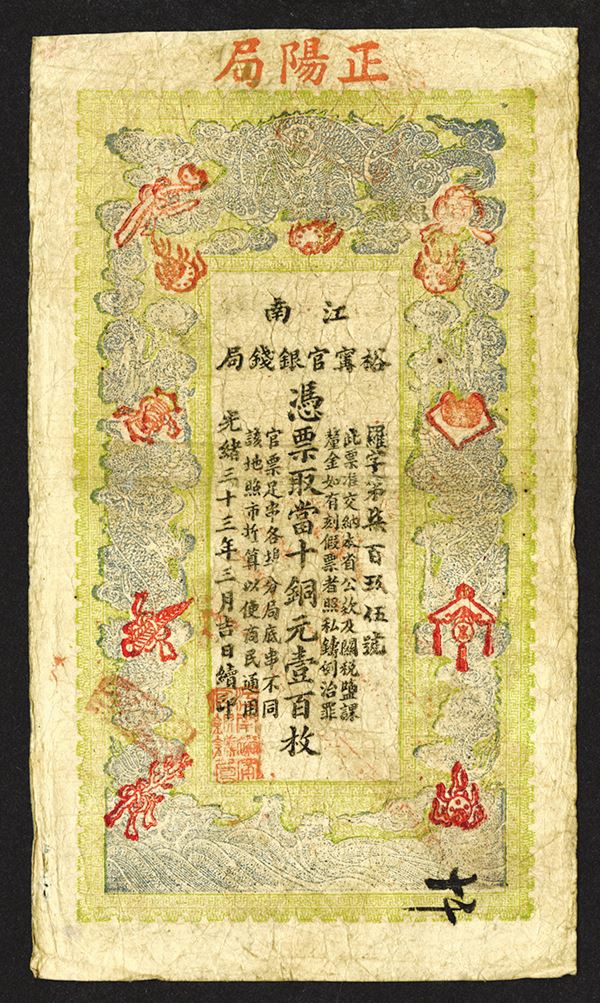 正陽局
江南
裕甯官銀錢局
羅字第柒百玖伍號
此票准交納本省公欵及關稅鹽課
釐金如有刻假票者照私鑄例治罪
憑票取當十銅元壹百枚
官票足串各埠分局底串不同
該地照市折算以便商民通用
光緒三十三年三月吉日續印